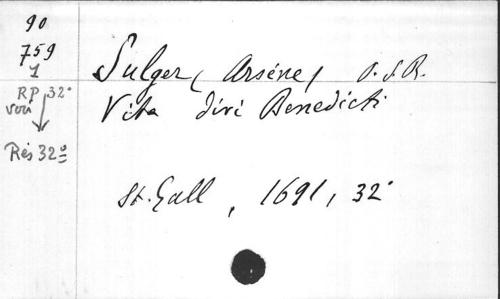 90
759
1
RP 32°
voir
Rés 32°
Sulger (Arsène) O.S.B.
Vita divi Benedicti
St. Gall, 1691, 32°